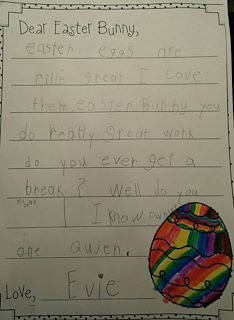 Dear Easter Bunny,
easter eggs are
rille great I Love
them. easter Bunny you
do really Great work
do you ever get a
break? Well do you
I know
the
Love, Evie